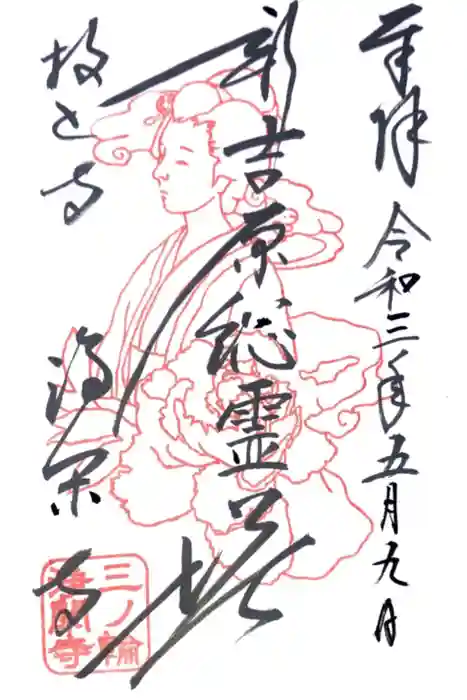 奉拝 令和三年五月九日
新吉原総霊塔
投込寺
浄閑寺
三ノ輪
浄閑寺